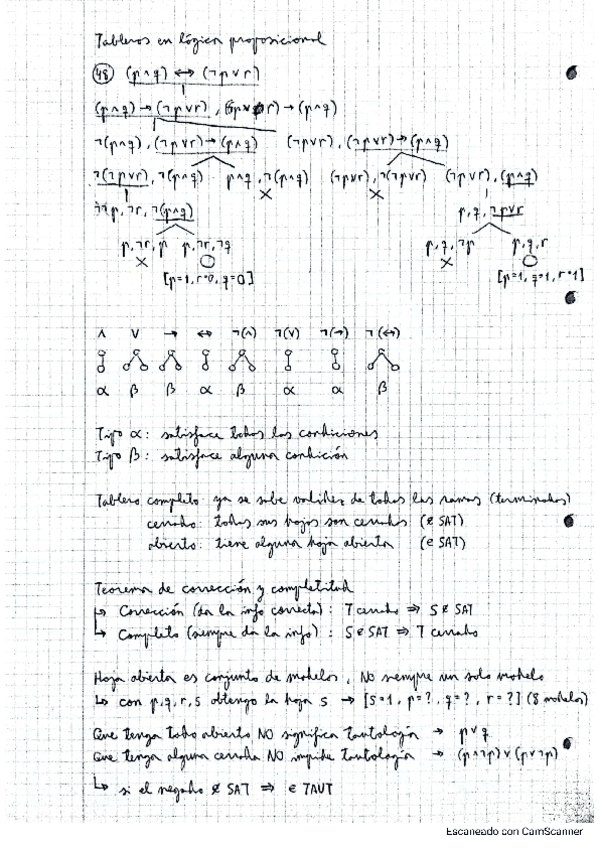 Tableros en lógica proposicional
48 (p∧q) ↔ (¬p∨r)
(p∧q) → (¬p∨r), (¬p∨r) → (p∧q)
¬(p∧q), (¬p∨r) → (p∧q) (¬p∨r), (¬p∨r) → (p∧q)
¬(¬p∨r), ¬(p∧q) p∧q, ¬(p∧q) (¬p∨r), ¬(¬p∨r) (¬p∨r), (p∧q)
× ×
¬¬p, ¬r, ¬(p∧q) p, q, ¬p∨r
p, ¬r, ¬p p, ¬r, ¬q p, q, ¬p p, q, r
× ○ × ○
[p=1, r=0, q=0] [p=1, q=1, r=1]
∧ ∨ → ↔ ¬(∧) ¬(∨) ¬(→) ¬(↔)
α β β α β α α β
Tipo α: satisface todas las condiciones
Tipo β: satisface alguna condición
Tablero completo: ya se sabe validez de todas las ramas (terminados)
cerrado: todas sus hojas son cerradas (∉ SAT)
abierto: tiene alguna hoja abierta (∈ SAT)
Teorema de corrección y completitud
↳ Corrección (da la info correcta): T cerrado ⇒ S ∉ SAT
↳ Completo (siempre da la info): S ∉ SAT ⇒ T cerrado
Hoja abierta es conjunto de modelos, NO siempre un solo modelo
↳ con p,q,r,s obtengo la hoja s → [s=1, p=?, q=?, r=?] (8 modelos)
Que tenga todo abierto NO significa tautología → p∨q
Que tenga alguna cerrada NO impide tautología → (p∧¬p)∨(p∨¬p)
↳ si el negado ∉ SAT ⇒ ∈ TAUT
Escaneado con CamScanner